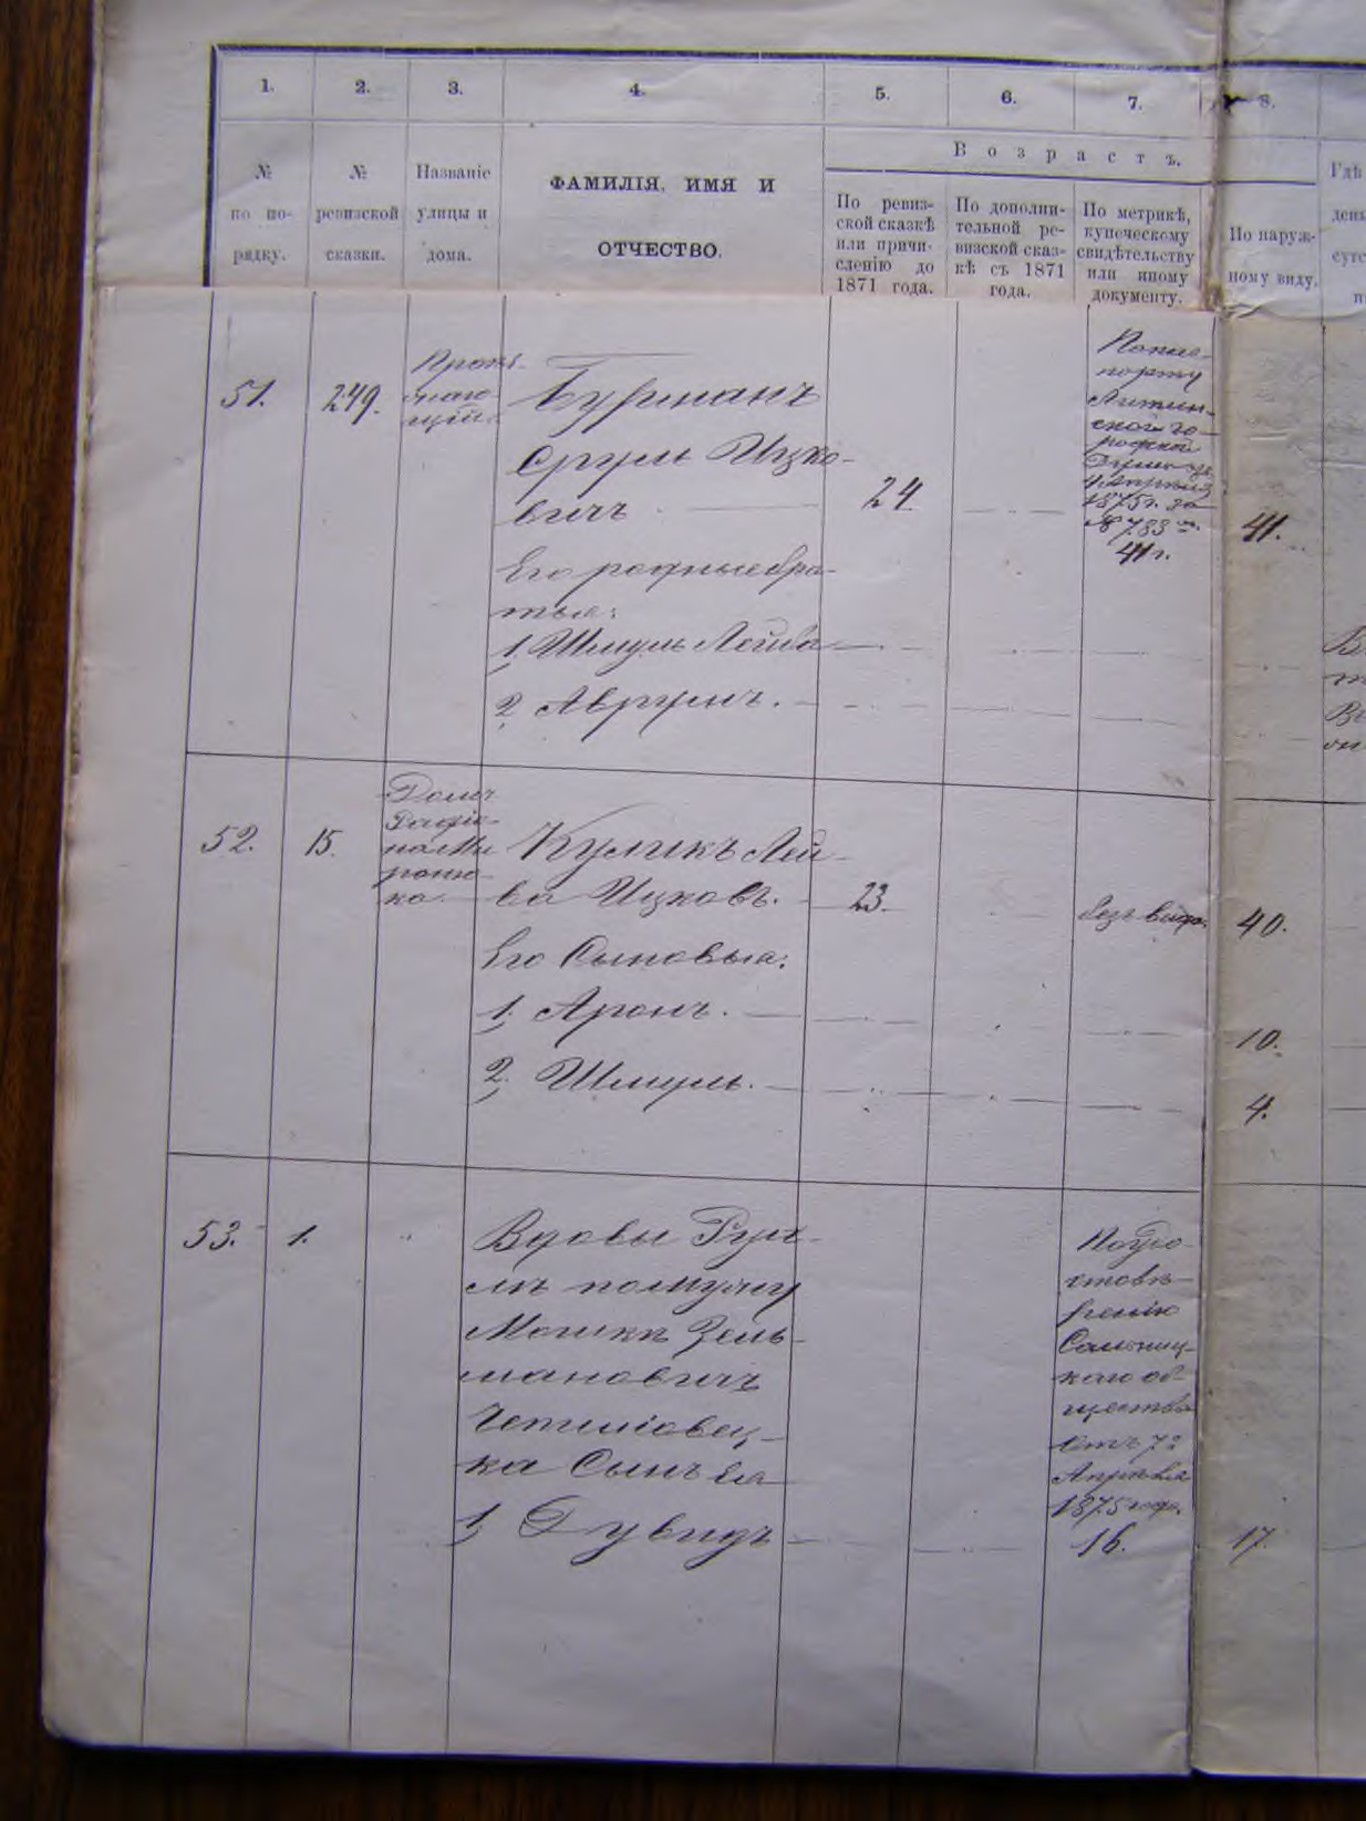 1. 2. 3. 4. 5. 6. 7. 8.
Возрастъ.
№
по по-
рядку.
№
ревизской
сказки.
Названіе
улицы и
дома.
ФАМИЛІЯ, ИМЯ И
ОТЧЕСТВО.
По ревиз-
ской сказкѣ
или причи-
сленію до
1871 года.
По дополни-
тельной ре-
визской сказ-
кѣ съ 1871
года.
По метрикѣ,
купеческому
свидѣтельству
или иному
документу.
По наруж-
ному виду.
Гдѣ
51.
249.
Прожи-
вающій
Бурманъ
Сруль Ицко-
вичъ
Его родные бра-
тья:
1. Шмуль Лейба
2. Аврумъ.
24.
Паспорту
Литин-
ской го-
родской
Думы
4 Апрѣля
1875 г. за
№ 783
41 г.
41.
52.
15.
Домъ
ка
Куликъ Лей-
ба Ицковъ.
Его Сыновья:
1. Аронъ.
2. Шмуль.
23.
безъ вида.
40.
10.
4.
53.
1.
Вдовы
по мужу
Мошкѣ Зель-
мановичъ
ка Сынъ Ея
1. Дувидъ
По удо-
стовѣ-
ренію
Сальниц-
каго об-
щества
отъ 7го
Апрѣля
1875 года.
16.
17.